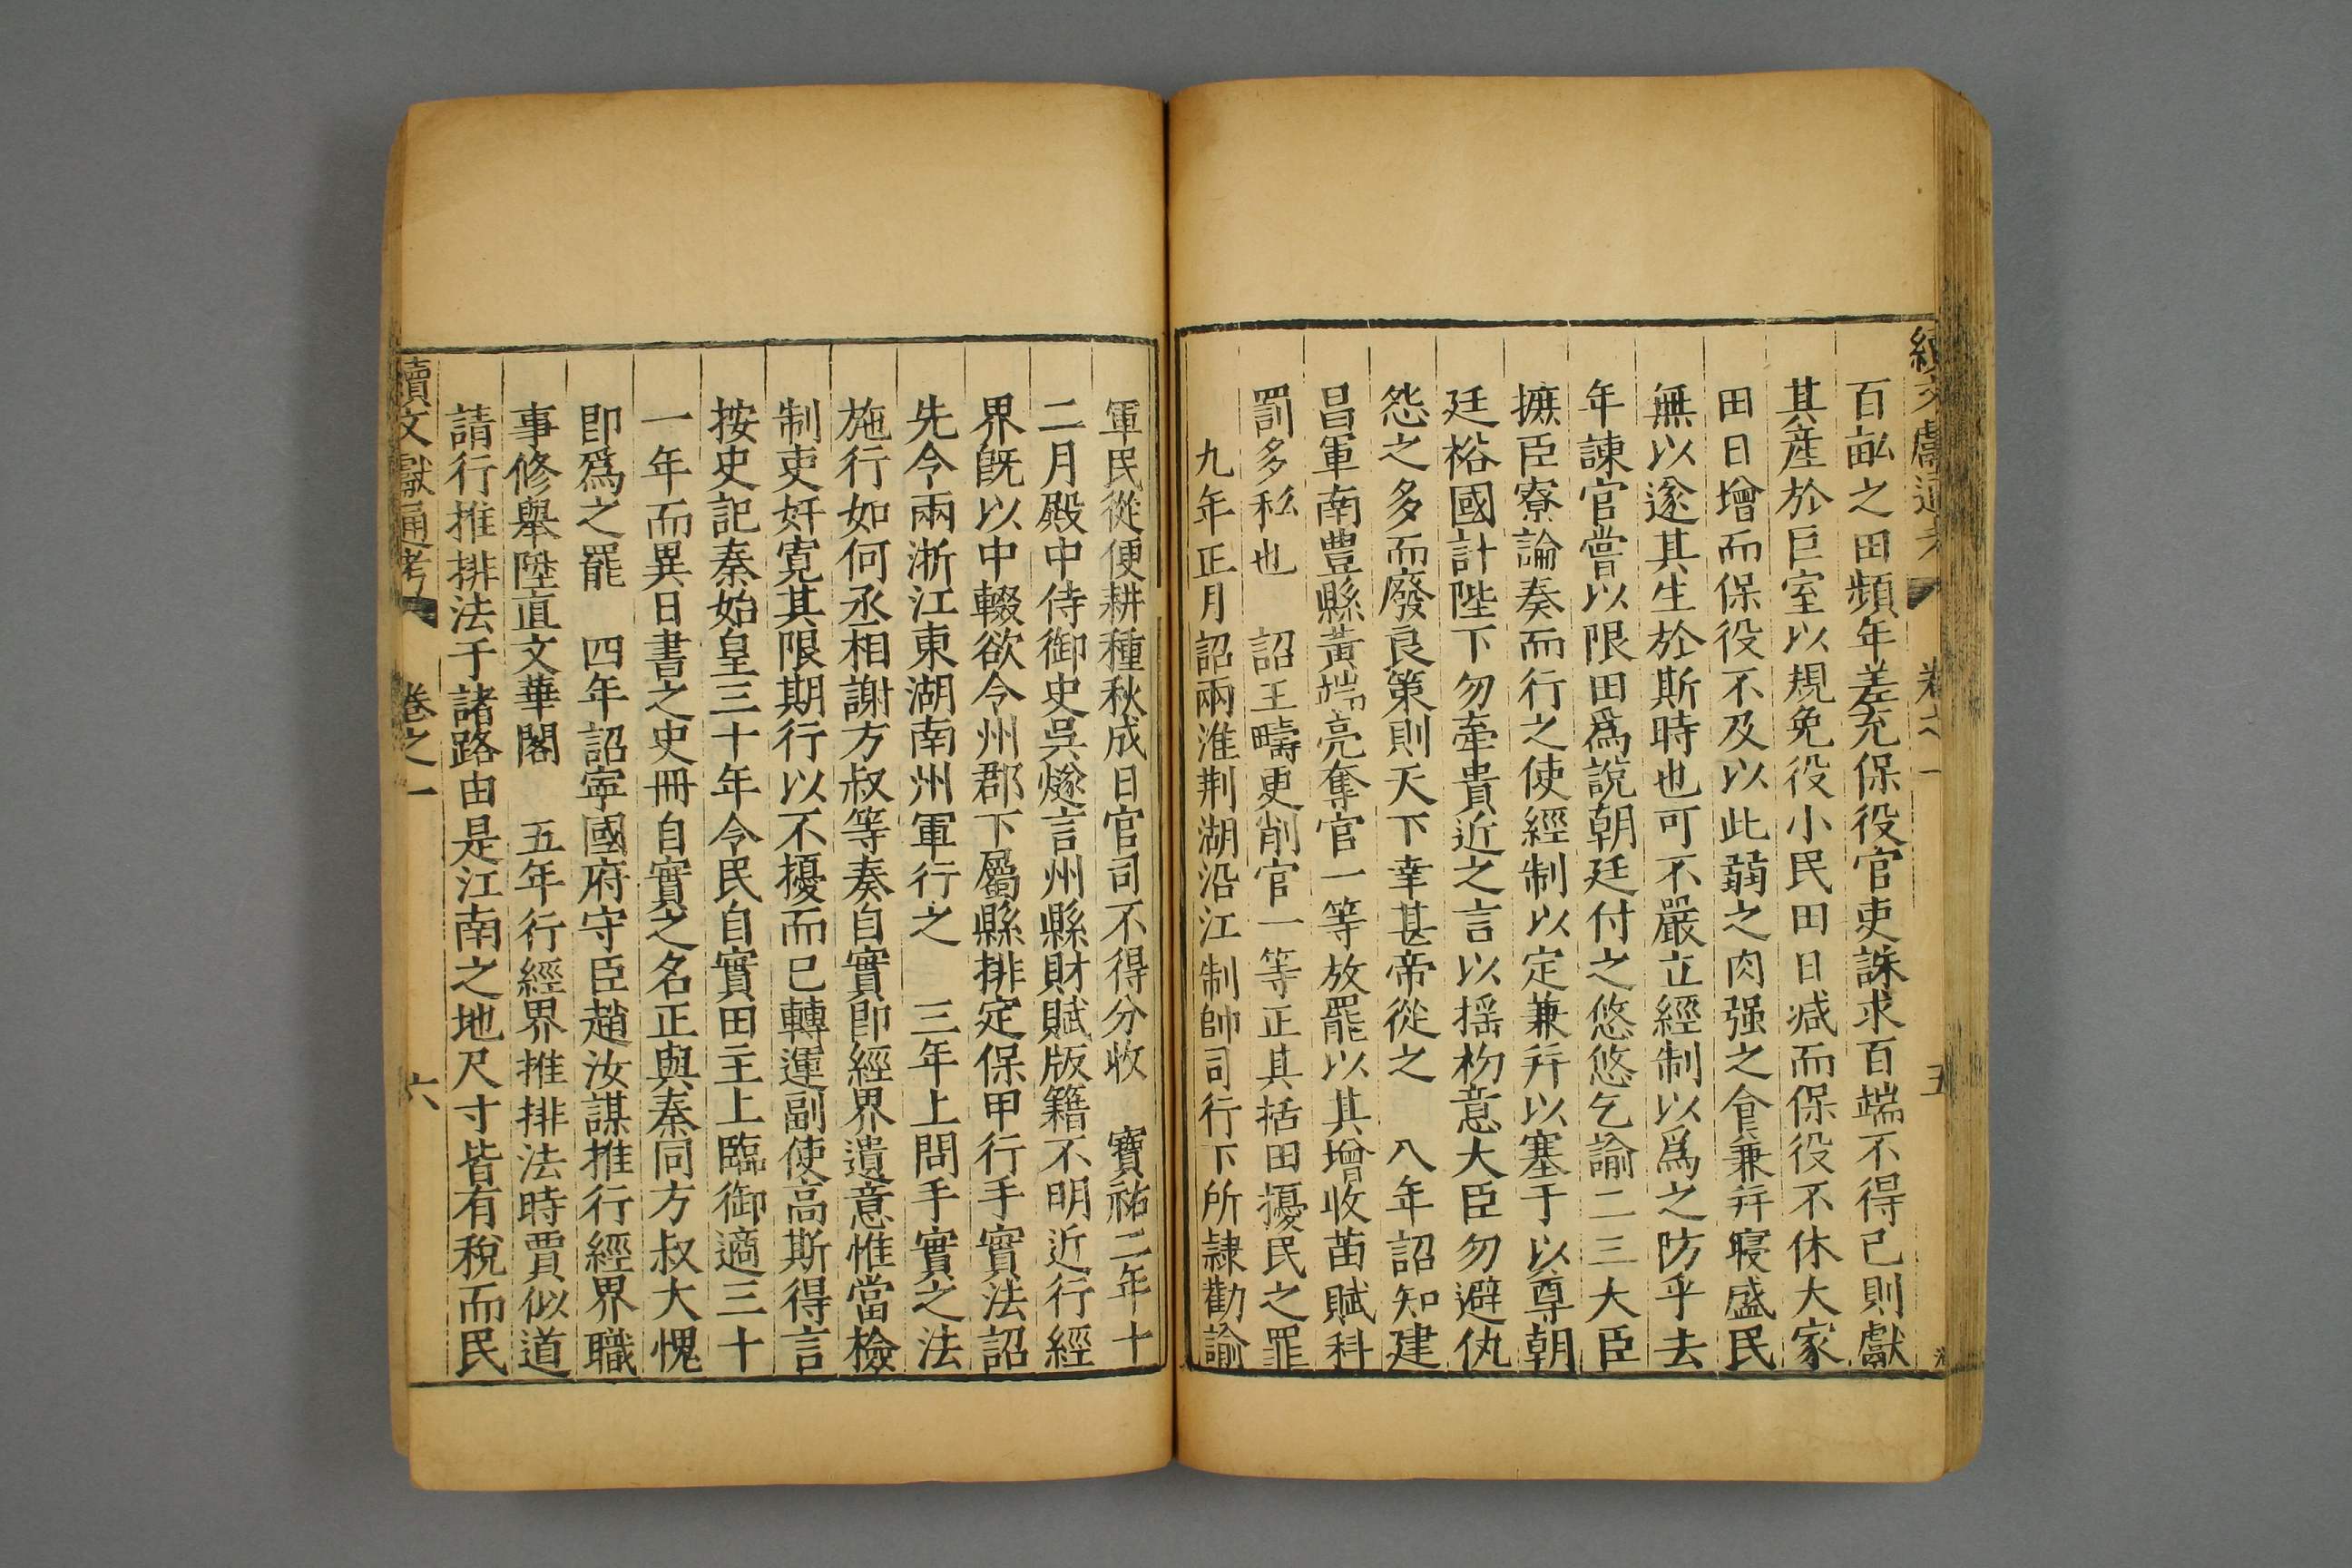 續文獻通考 卷之一 五
百畝之田頻年差充保役官吏誅求百端不得已則獻
其産於巨室以規免役小民田日減而保役不休大家
田日增而保役不及以此弱之肉强之食兼并寖盛民
無以遂其生於斯時也可不嚴立經制以爲之防乎去
年諫官嘗以限田爲說朝廷付之悠悠乞諭二三大臣
摭臣寮論奏而行之使經制以定兼并以塞于以尊朝
廷裕國計陛下勿牽貴近之言以揺朸意大臣勿避仇
怨之多而廢良策則天下幸甚帝從之 八年詔知建
昌軍南豊縣黃端亮奪官一等放罷以其增收苗賦科
罰多私也 詔王疇更削官一等正其括田擾民之罪
九年正月詔兩淮荆湖沿江制帥司行下所隷勸諭
軍民從便耕種秋成日官司不得分收 寶祐二年十
二月殿中侍御史吳燧言州縣財賦版籍不明近行經
界旣以中輟欲令州郡下屬縣排定保甲行手實法詔
先令兩浙江東湖南州軍行之 三年上問手實之法
施行如何丞相謝方叔等奏自實即經界遺意惟當檢
制吏奸寛其限期行以不擾而已轉運副使高斯得言
按史記秦始皇三十年令民自實田主上臨御適三十
一年而異日書之史冊自實之名正與秦同方叔大愧
即爲之罷 四年詔寧國府守臣趙汝謀推行經界職
事修舉陞直文華閣 五年行經界推排法時賈似道
請行推排法于諸路由是江南之地尺寸皆有稅而民
續文獻通考 卷之一 六